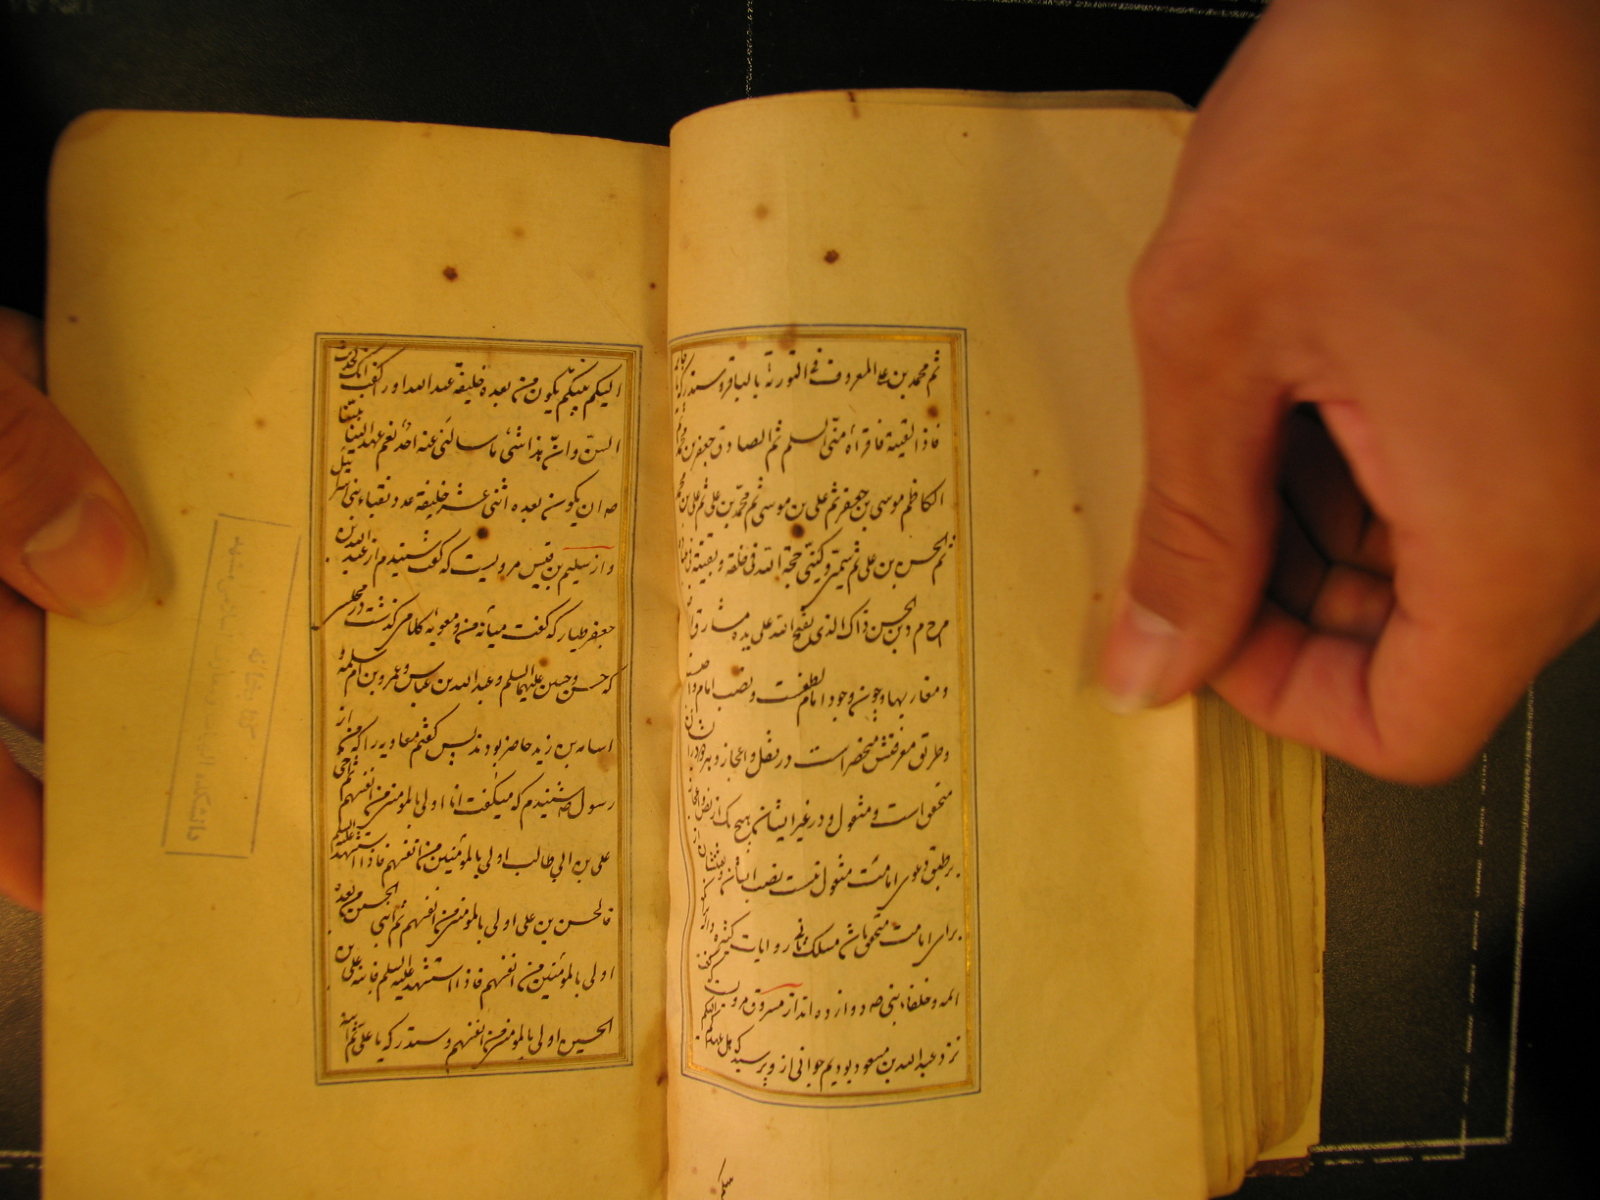 ثم محمد بن علی المعروف فی التوریة بالباقر و ستدرکه یا جابر
فاذا لقیته فاقراه منی السلم ثم الصادق جعفر بن محمد ثم
الکاظم موسی بن جعفر ثم علی بن موسی ثم محمد بن علی ثم علی بن محمد
ثم الحسن بن علی ثم سمیی و کنیی حجة الله فی خلقه و بقیته فی عباده
م ح م د بن الحسن ذاک الذی یفتح الله علی یده مشارق الارض
و مغاربها و چون وجود امام لطفست و نصب امام واجب
و طریق معرفتش منحصر است در نقل و اعجاز و هر دو در ایشان
متحقق است و منقول و در غیر ایشان هیچ یک از نص و اعجاز
بر طبق دعوی امامت منقول نیست نصب ایشان و تعیینشان از
برای امامت متحقق باشد مسلک ثانی روایات کثیره
ائمه و خلفاء نبی صه دوازده اند از مسروق مرویست که گفت
نزد عبدالله بن مسعود بودیم جوانی از و پرسید که هل عهد الیکم
الیکم نبیکم یکون من بعده خلیفة عبدالله اورا گفت انک لحدث
السن و ان هذا شیء ما سالنی عنه احد نعم عهد الینا نبینا
صه ان یکون بعده اثنی عشر خلیفة عدد نقباء بنی اسرائیل
و از سلیم بن قیس مرویست که گفت شنیدم از عبدالله بن
جعفر طیار که گفت میانه من و معویه کلامی گذشت در مجلسی
که حسن و حسین علیهما السلم و عبدالله بن عباس و عمرو بن ام سلمه و
اسامه بن زید حاضر بودند پس گفتم معاویه را که من از
رسول صه شنیدم که میگفت انا اولی بالمومنین من انفسهم ثم اخی
علی بن ابی طالب اولی بالمومنین من انفسهم فاذا استشهد علیه السلم
فالحسن بن علی اولی بالمومنین من انفسهم ثم ابنی الحسین من بعده
اولی بالمومنین من انفسهم فاذا استشهد علیه السلم فابنه علی بن
الحسین اولی بالمومنین من انفسهم و ستدرکه یا علی ثم ابنه